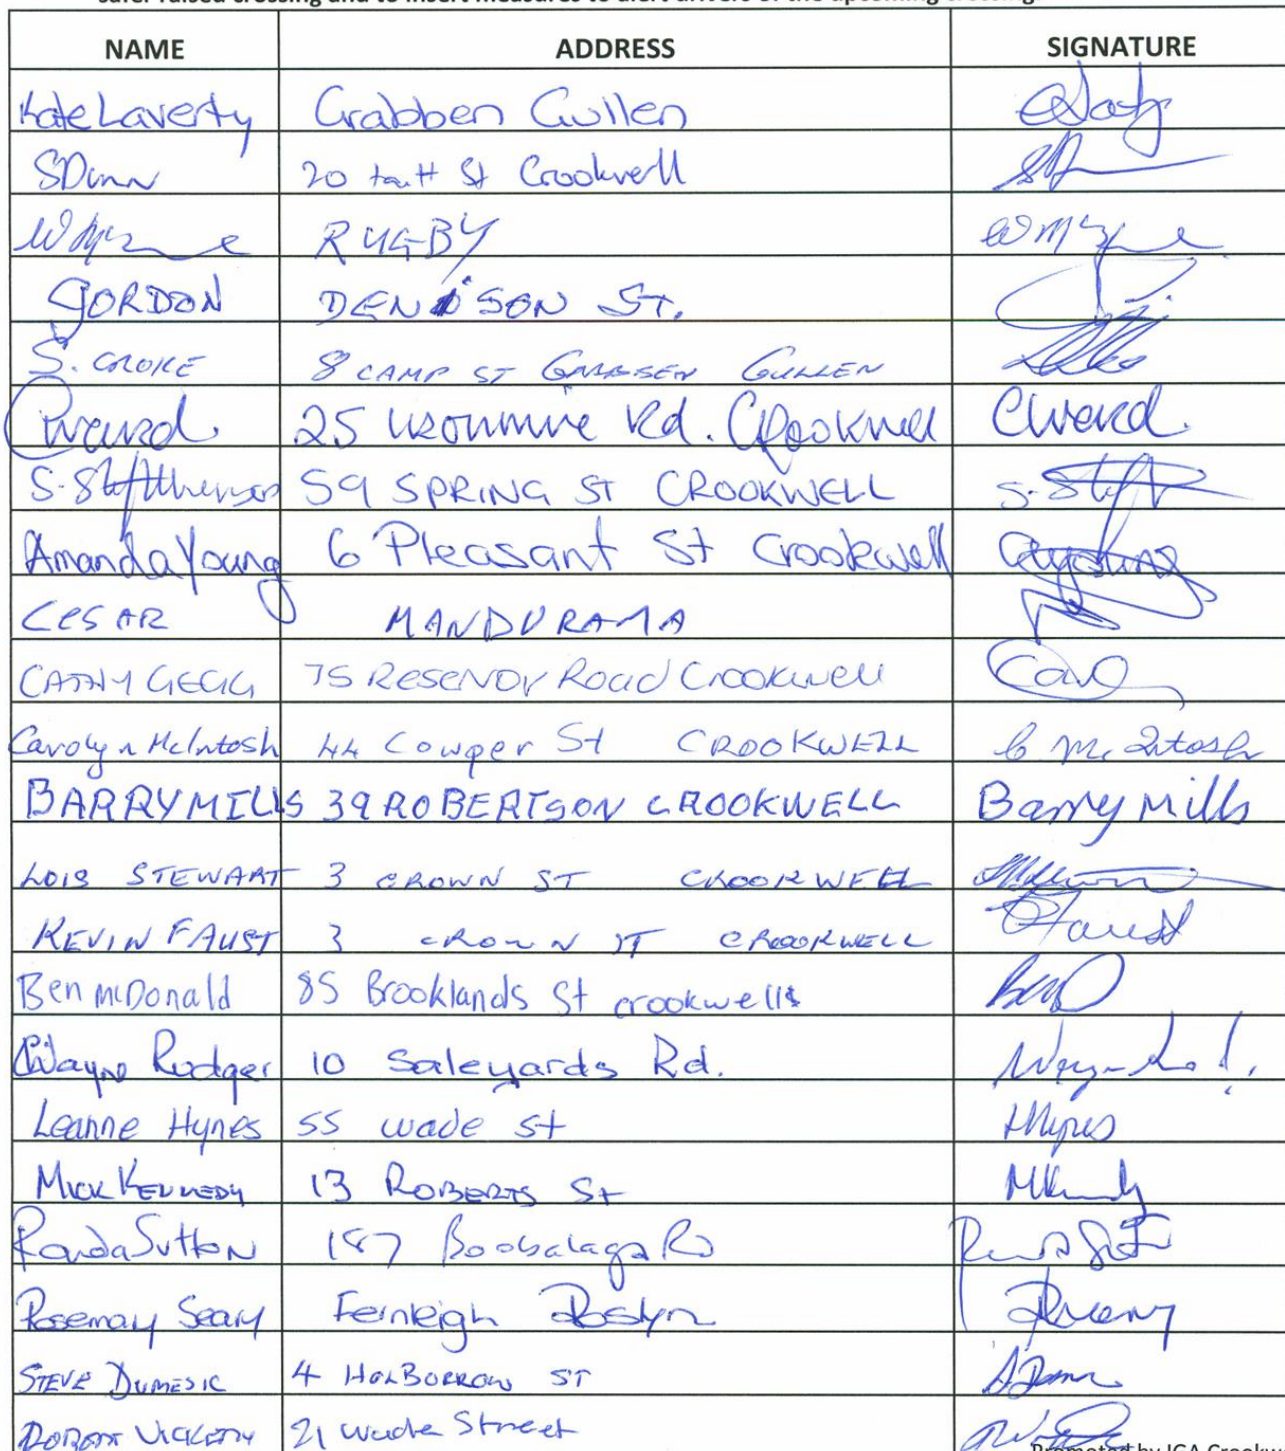 safer raised crossing and to insert measures to alert drivers of the upcoming crossing.
NAME ADDRESS SIGNATURE
Kate Laverty Grabben Gullen
SDunn 20 tait St Crookwell
RUGBY
GORDON DENISON ST.
S. CROKE 8 CAMP ST GRABBEN GULLEN
CWard. 25 Rd. Crookwell CWard.
S. 59 SPRING ST CROOKWELL
Amanda Young 6 Pleasant St Crookwell AYoung
CESAR MANDURAMA
CATHY GEGG 75 Reservoy Road Crookwell
Carolyn McIntosh 44 Cowper St CROOKWELL C McIntosh
BARRY MILLS 39 ROBERTSON CROOKWELL Barry Mills
LOIS STEWART 3 CROWN ST CROOKWELL
KEVIN FAUST 3 CROWN ST CROOKWELL Faust
Ben McDonald 85 Brooklands St crookwell
Wayne Rudger 10 Saleyards Rd.
Leanne Hynes 55 wade st LHynes
MICK KENNEDY 13 ROBERTS St
Sutton 187 Boobalaga Rd
Rosemary Seary Fernleigh Roslyn
STEVE DUMESIC 4 HOLBORROW ST
ROBERT VICKERY 21 wade Street
Promoted by IGA Crookw